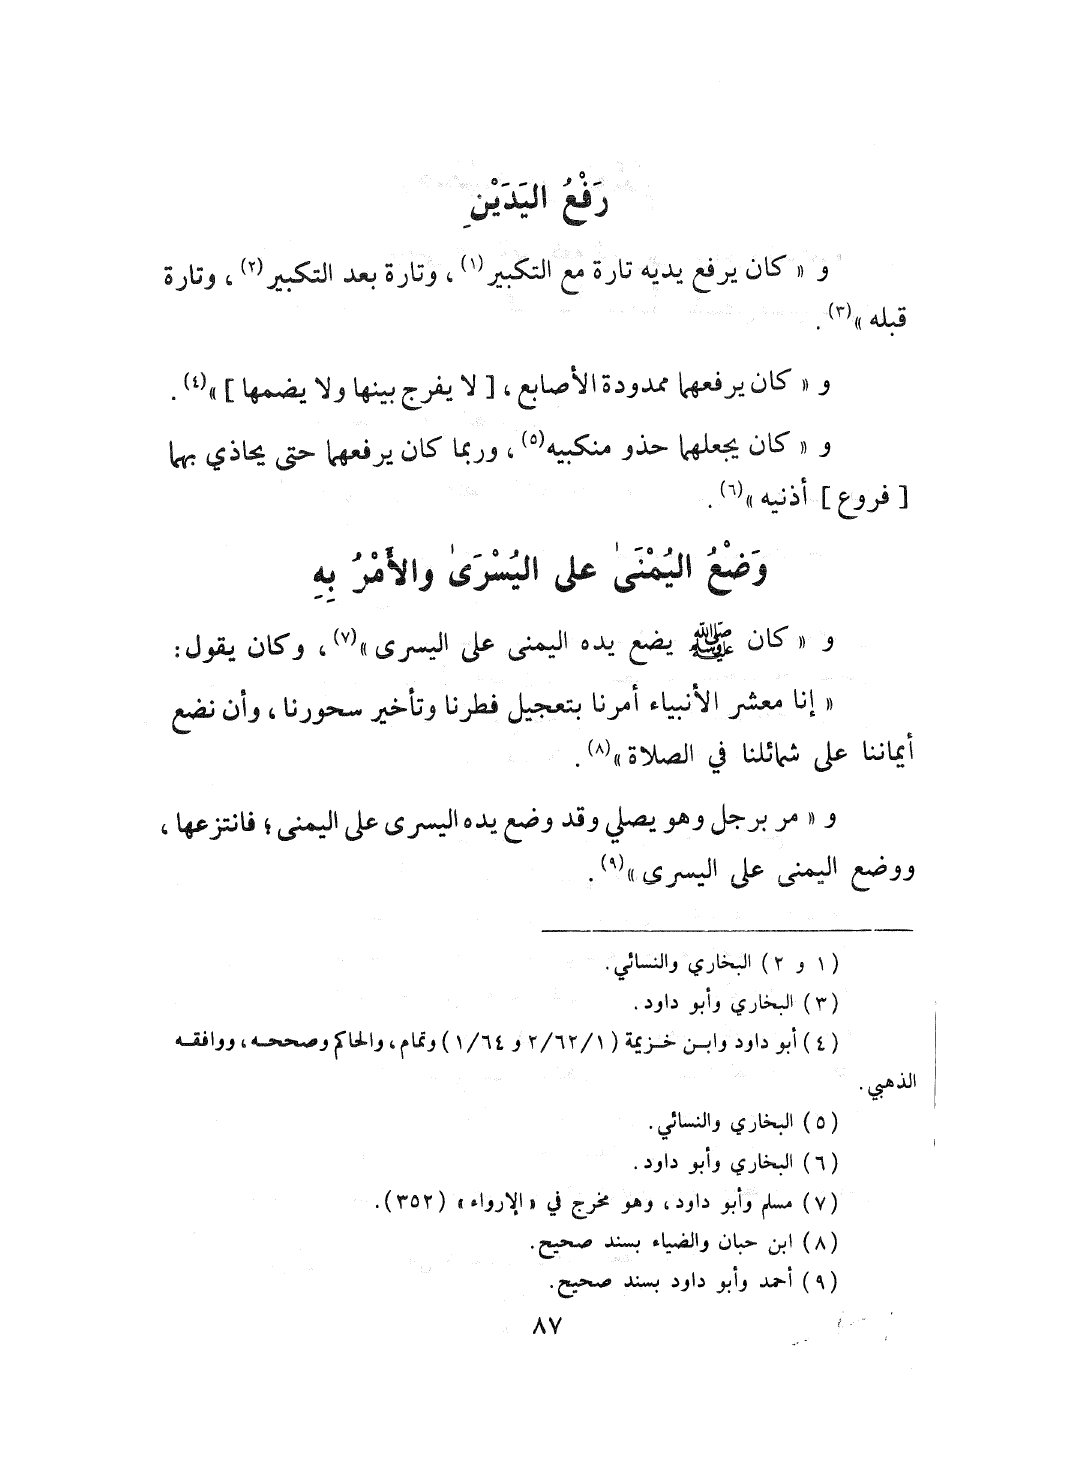 رَفْعُ اليَدَيْنِ
و « كان يرفع يديه تارة مع التكبير(١) ، وتارة بعد التكبير(٢) ، وتارة
قبله »(٣) .
و « كان يرفعهما ممدودة الأصابع ، [ لا يفرج بينها ولا يضمها ] »(٤) .
و « كان يجعلهما حذو منكبيه(٥) ، وربما كان يرفعهما حتى يحاذي بهما
[ فروع ] أذنيه »(٦) .
وَضْعُ اليُمْنَىٰ على اليُسْرَىٰ والأَمْرُ بِهِ
و « كان ﷺ يضع يده اليمنى على اليسرى »(٧) ، وكان يقول :
« إنا معشر الأنبياء أمرنا بتعجيل فطرنا وتأخير سحورنا ، وأن نضع
أيماننا على شمائلنا في الصلاة »(٨) .
و « مر برجل وهو يصلي وقد وضع يده اليسرى على اليمنى ؛ فانتزعها ،
ووضع اليمنى على اليسرى »(٩) .
(١ و ٢) البخاري والنسائي .
(٣) البخاري وأبو داود .
(٤) أبو داود وابن خزيمة (٢/٦٢/١ و ١/٦٤) وتمام ، والحاكم وصححه ، ووافقه
الذهبي .
(٥) البخاري والنسائي .
(٦) البخاري وأبو داود .
(٧) مسلم وأبو داود ، وهو مخرج في « الإرواء » (٣٥٢) .
(٨) ابن حبان والضياء بسند صحيح .
(٩) أحمد وأبو داود بسند صحيح .
٨٧